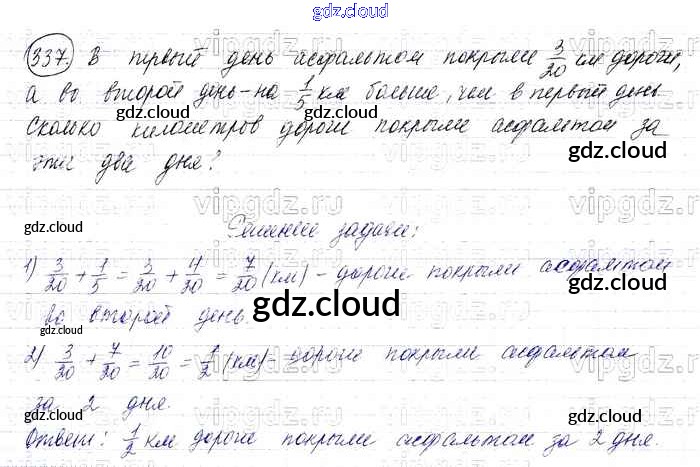 gdz.cloud
337. В первый день асфальтом покрыли 3/20 км дороги,
а во второй день - на 1/5 км больше, чем в первый день.
gdz.cloud gdz.cloud
Сколько километров дороги покрыли асфальтом за
эти два дня?
gdz.cloud
vipgdz.cloud
gdz.cloud
Решение задачи:
1) 3/20 + 1/5 = 3/20 + 4/20 = 7/20 (км) - дороги покрыли асфальтом
gdz.cloud gdz.cloud
во второй день.
2) 3/20 + 7/20 = 10/20 = 1/2 (км) - дороги покрыли асфальтом
за 2 дня.
gdz.cloud gdz.cloud
Ответ: 1/2 км дороги покрыли асфальтом за 2 дня.
gdz.cloud